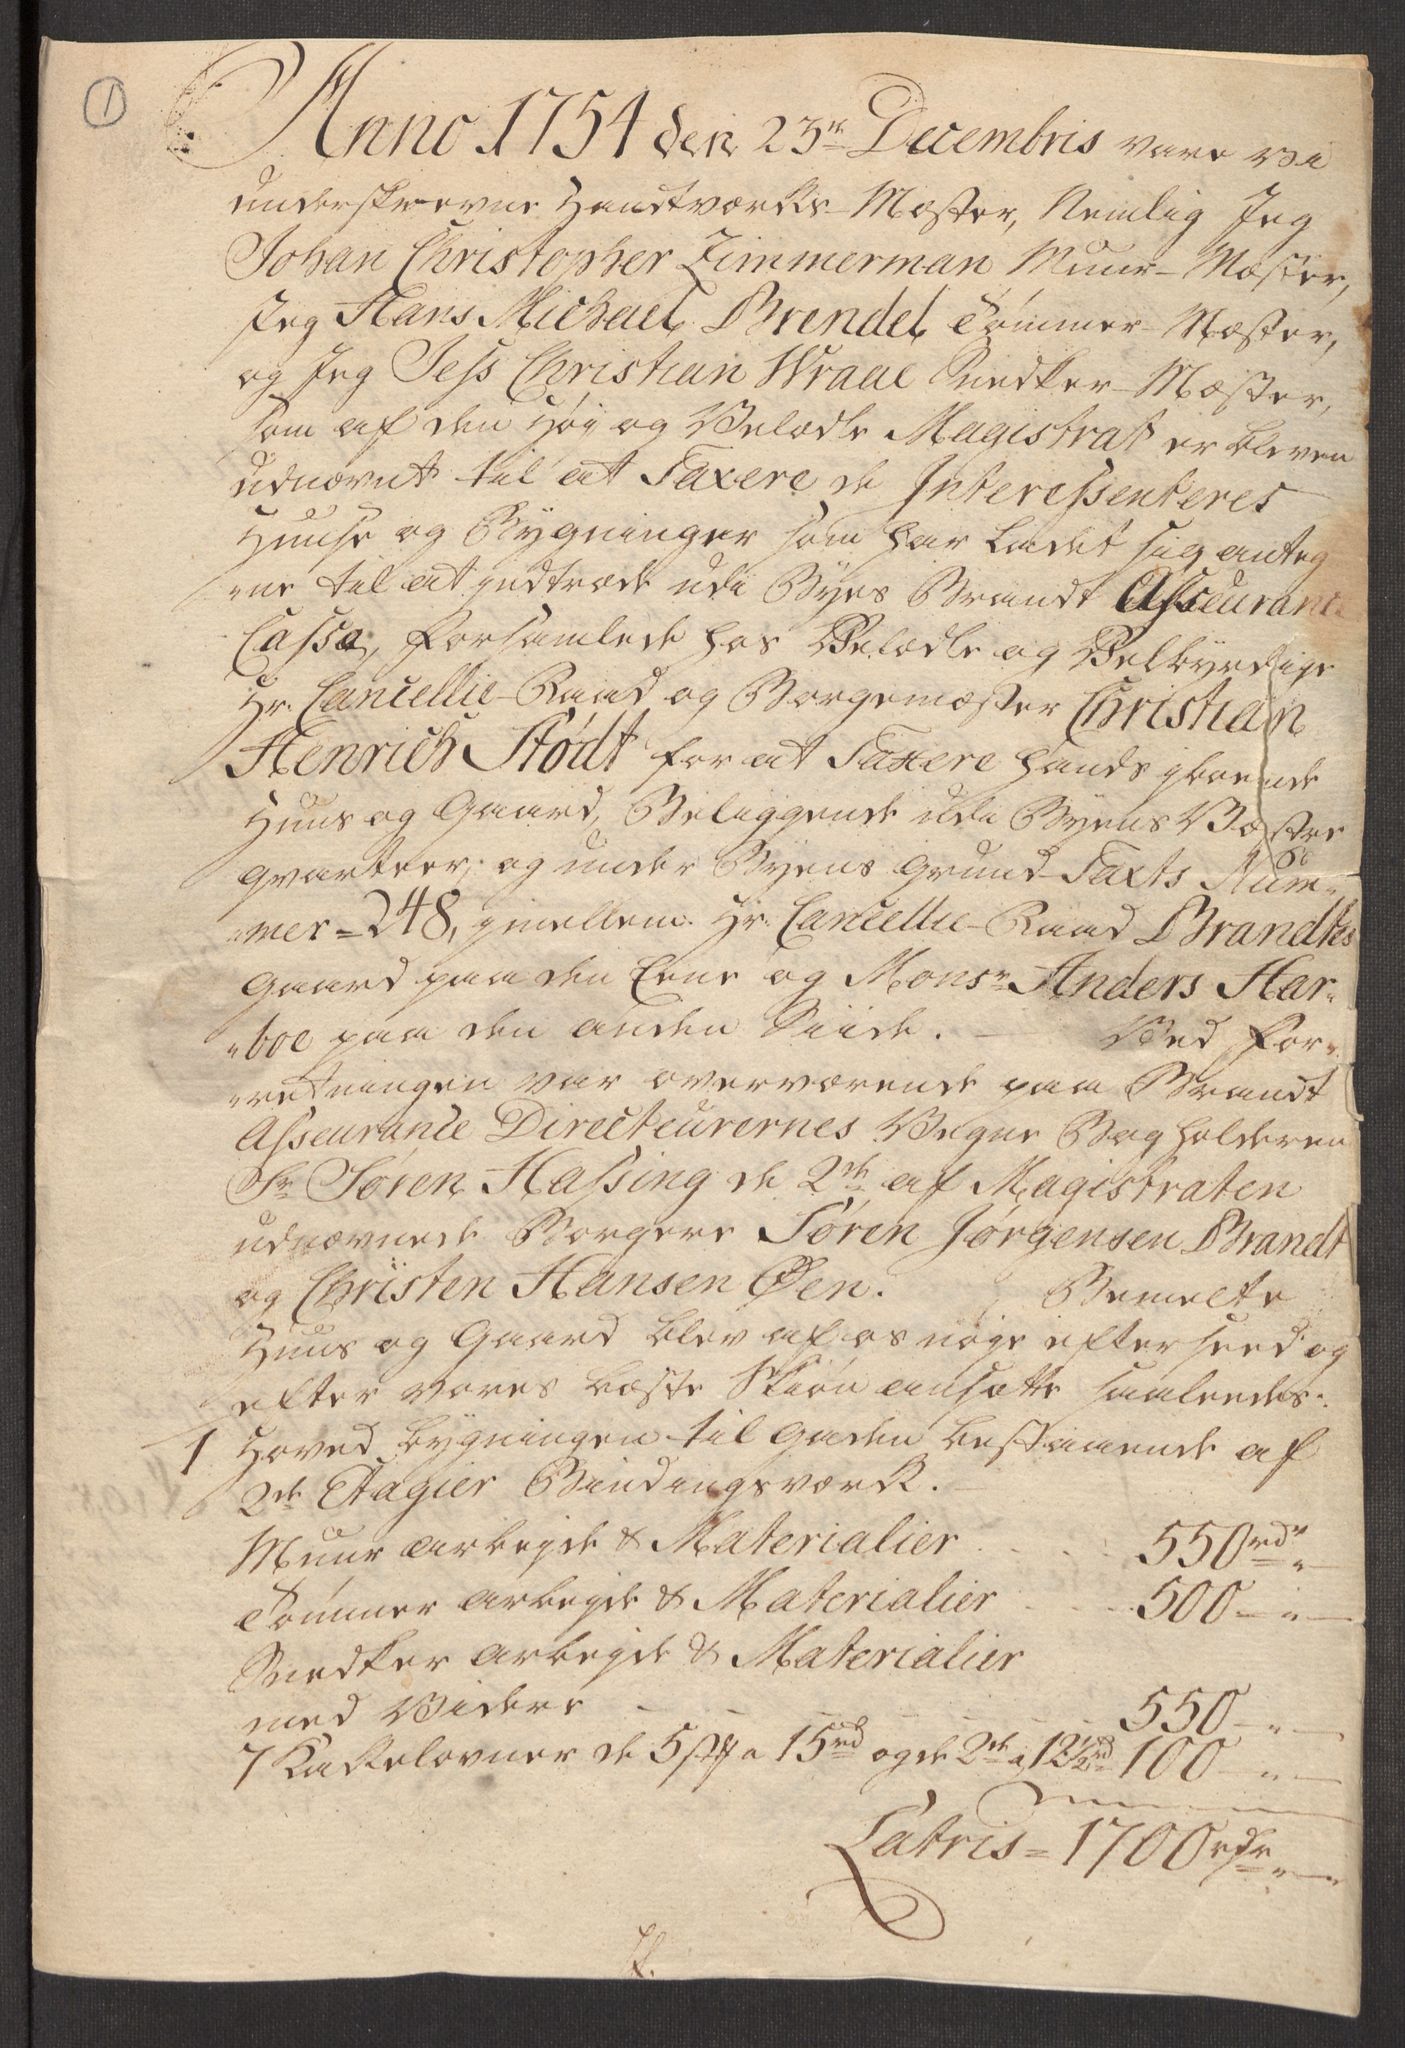 1
Anno 1754 den 23de Decembris vare vi
underskrevne Handtværks-Mæster, Nemlig Jeg
Johan Christopher Zimmerman Muur-Mæster,
Jeg Hans Michael Brendel Tömmer-Mæster,
og Jeg Jess Christian Wraae Snedker-Mæster,
som af den Höy og Velædle Magistrat er bleven
udnævnt til at Taxere de Interessenteres
Huuse og Bygninger som har ladet sig anteg
"ne til at jndtræde udi Byes Brandt Asseurance
Cassa, forsamlede hos Velædle og Velbyrdige
Hr. Cancellie-Raad og Borgemæster Christian
Henrich Stödt for at Taxere hands jboende
Huus og Gaard, Beliggende udi Byens Væstre
qvarteer, og under Byens Grund-Taxts Num-
"mer=248, jmellem Hr. Cancellie-Raad Brandtes
Gaard paa den Eene og Monsr Anders Har-
"boe paa den anden Siide. - Ved For-
"retningen var overværende paa Brandt
Asseurance Directeurernes Vegne Bogholderen
Sr Sören Hassing de 2de af Magistraten
udnævnede Borgere Sören Jörgensen Brandt
og Christen Hansen Øen. Bemelte
Huus og Gaard blev af os nöye efterseed og
efter vores bæste Skiön ansatte saaleedes:
1 Hoved bygningen til gaden bestaaende af
2de Etagier Bindingsværck.
Muur arbejde & Materialier . . . 550 rdr "
Tömmer arbejde & Materialier . . . 500 - " -
Snedker arbejde & Materialier
med Videre - - - 550 - " -
7 Kakelovner de 5 st a 15 rd og de 2de a 12½ rd 100 - " -
Latris = 1700 rdr " -